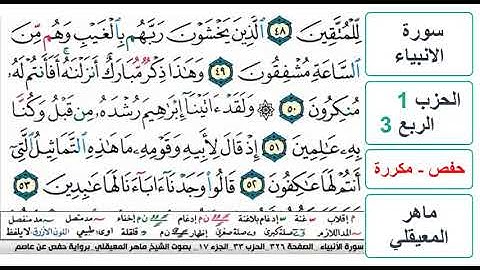 لِّلْمُتَّقِينَ ٤٨ ٱلَّذِينَ يَخْشَوْنَ رَبَّهُم بِٱلْغَيْبِ وَهُم مِّنَ
ٱلسَّاعَةِ مُشْفِقُونَ ٤٩ وَهَٰذَا ذِكْرٌ مُّبَارَكٌ أَنزَلْنَٰهُ أَفَأَنتُمْ لَهُۥ
مُنكِرُونَ ٥٠ ۞ وَلَقَدْ ءَاتَيْنَآ إِبْرَٰهِيمَ رُشْدَهُۥ مِن قَبْلُ وَكُنَّا
بِهِۦ عَٰلِمِينَ ٥١ إِذْ قَالَ لِأَبِيهِ وَقَوْمِهِۦ مَا هَٰذِهِ ٱلتَّمَاثِيلُ ٱلَّتِىٓ
أَنتُمْ لَهَا عَٰكِفُونَ ٥٢ قَالُوا۟ وَجَدْنَآ ءَابَآءَنَا لَهَا عَٰبِدِينَ ٥٣
سورة
الانبياء
الحزب 1
الربع 3
حفص - مكررة
ماهر
المعيقلي
سورة الأنبياء _ الصفحة ٣٢٦ _ الحزب ٣٣ _ الجزء ١٧ _ بصوت الشيخ ماهر المعيقلي _ برواية حفص عن عاصم